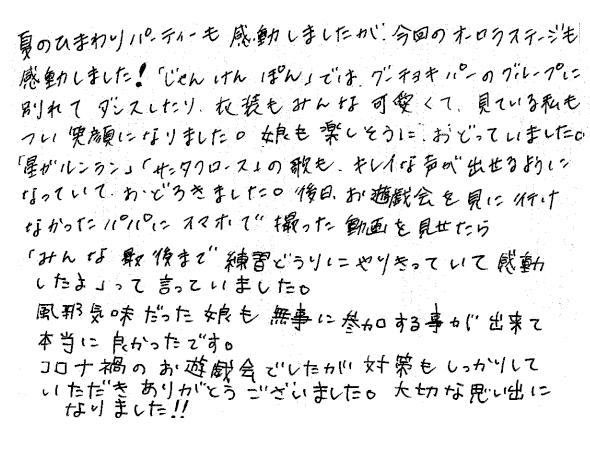 夏のひまわりパーティーも感動しましたが、今回のオーロラステージも
感動しました!「じゃんけんぽん」では、グーチョキパーのグループに
別れてダンスしたり、衣装もみんな可愛くて、見ている私も
つい笑顔になりました。娘も楽しそうに、おどっていました。
「星がルンラン」「サンタクロース」の歌も、キレイな声が出せるように
なっていて、おどろきました。後日、お遊戯会を見に行け
なかったパパにスマホで撮った動画を見せたら
「みんな最後まで練習どうりにやりきっていて感動
したよ」って言っていました。
風邪気味だった娘も無事に参加する事が出来て
本当に良かったです。
コロナ禍のお遊戯会でしたが対策もしっかりして
いただきありがとうございました。大切な思い出に
なりました!!